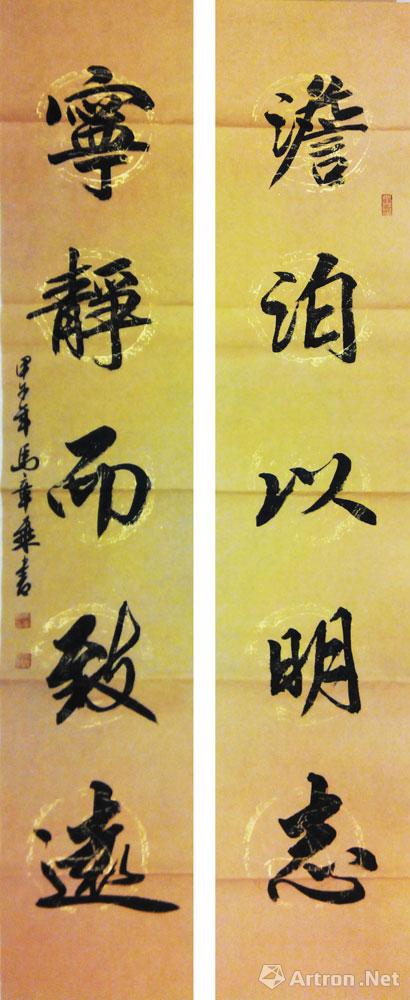 澹泊以明志
寧靜而致遠
甲午年馬章乘書
Artron.Net